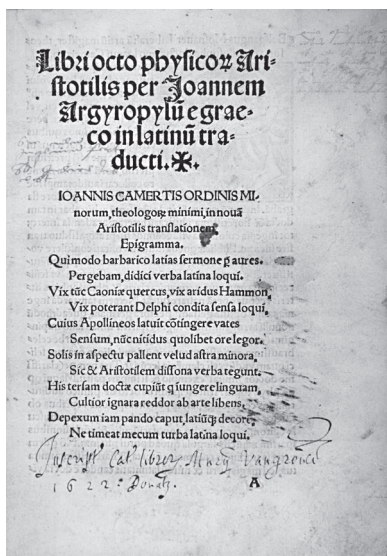 Libri octo physicoꝝ Ari-
stotilis per Joannem
Argyropylũ e grae-
co in latinũ tra-
ducti.✠.
IOANNIS CAMERTIS ORDINIS MI-
norum, theologoꝝ minimi, in nouã
Aristotilis translationem,
Epigramma.
Qui modo barbarico latias sermone ꝑ aures.
Pergebam, didici verba latina loqui.
Vix tũc Caoniæ quercus, vix aridus Hammon,
Vix poterant Delphi condita sensa loqui,
Cuius Apollineos latuit cõtingere vates
Sensum, nũc nitidus quolibet ore legor.
Solis in aspectu pallent velud astra minora,
Sic & Aristotilem dissona verba tegunt.
His tersam doctæ cupiũt q iungere linguam,
Cultior ignara reddor ab arte libens,
Depexum iam pando caput, latiũqꝫ decore,
Ne timeat mecum turba latina loqui.
Inscript Cat libror
1622. Donat.
A